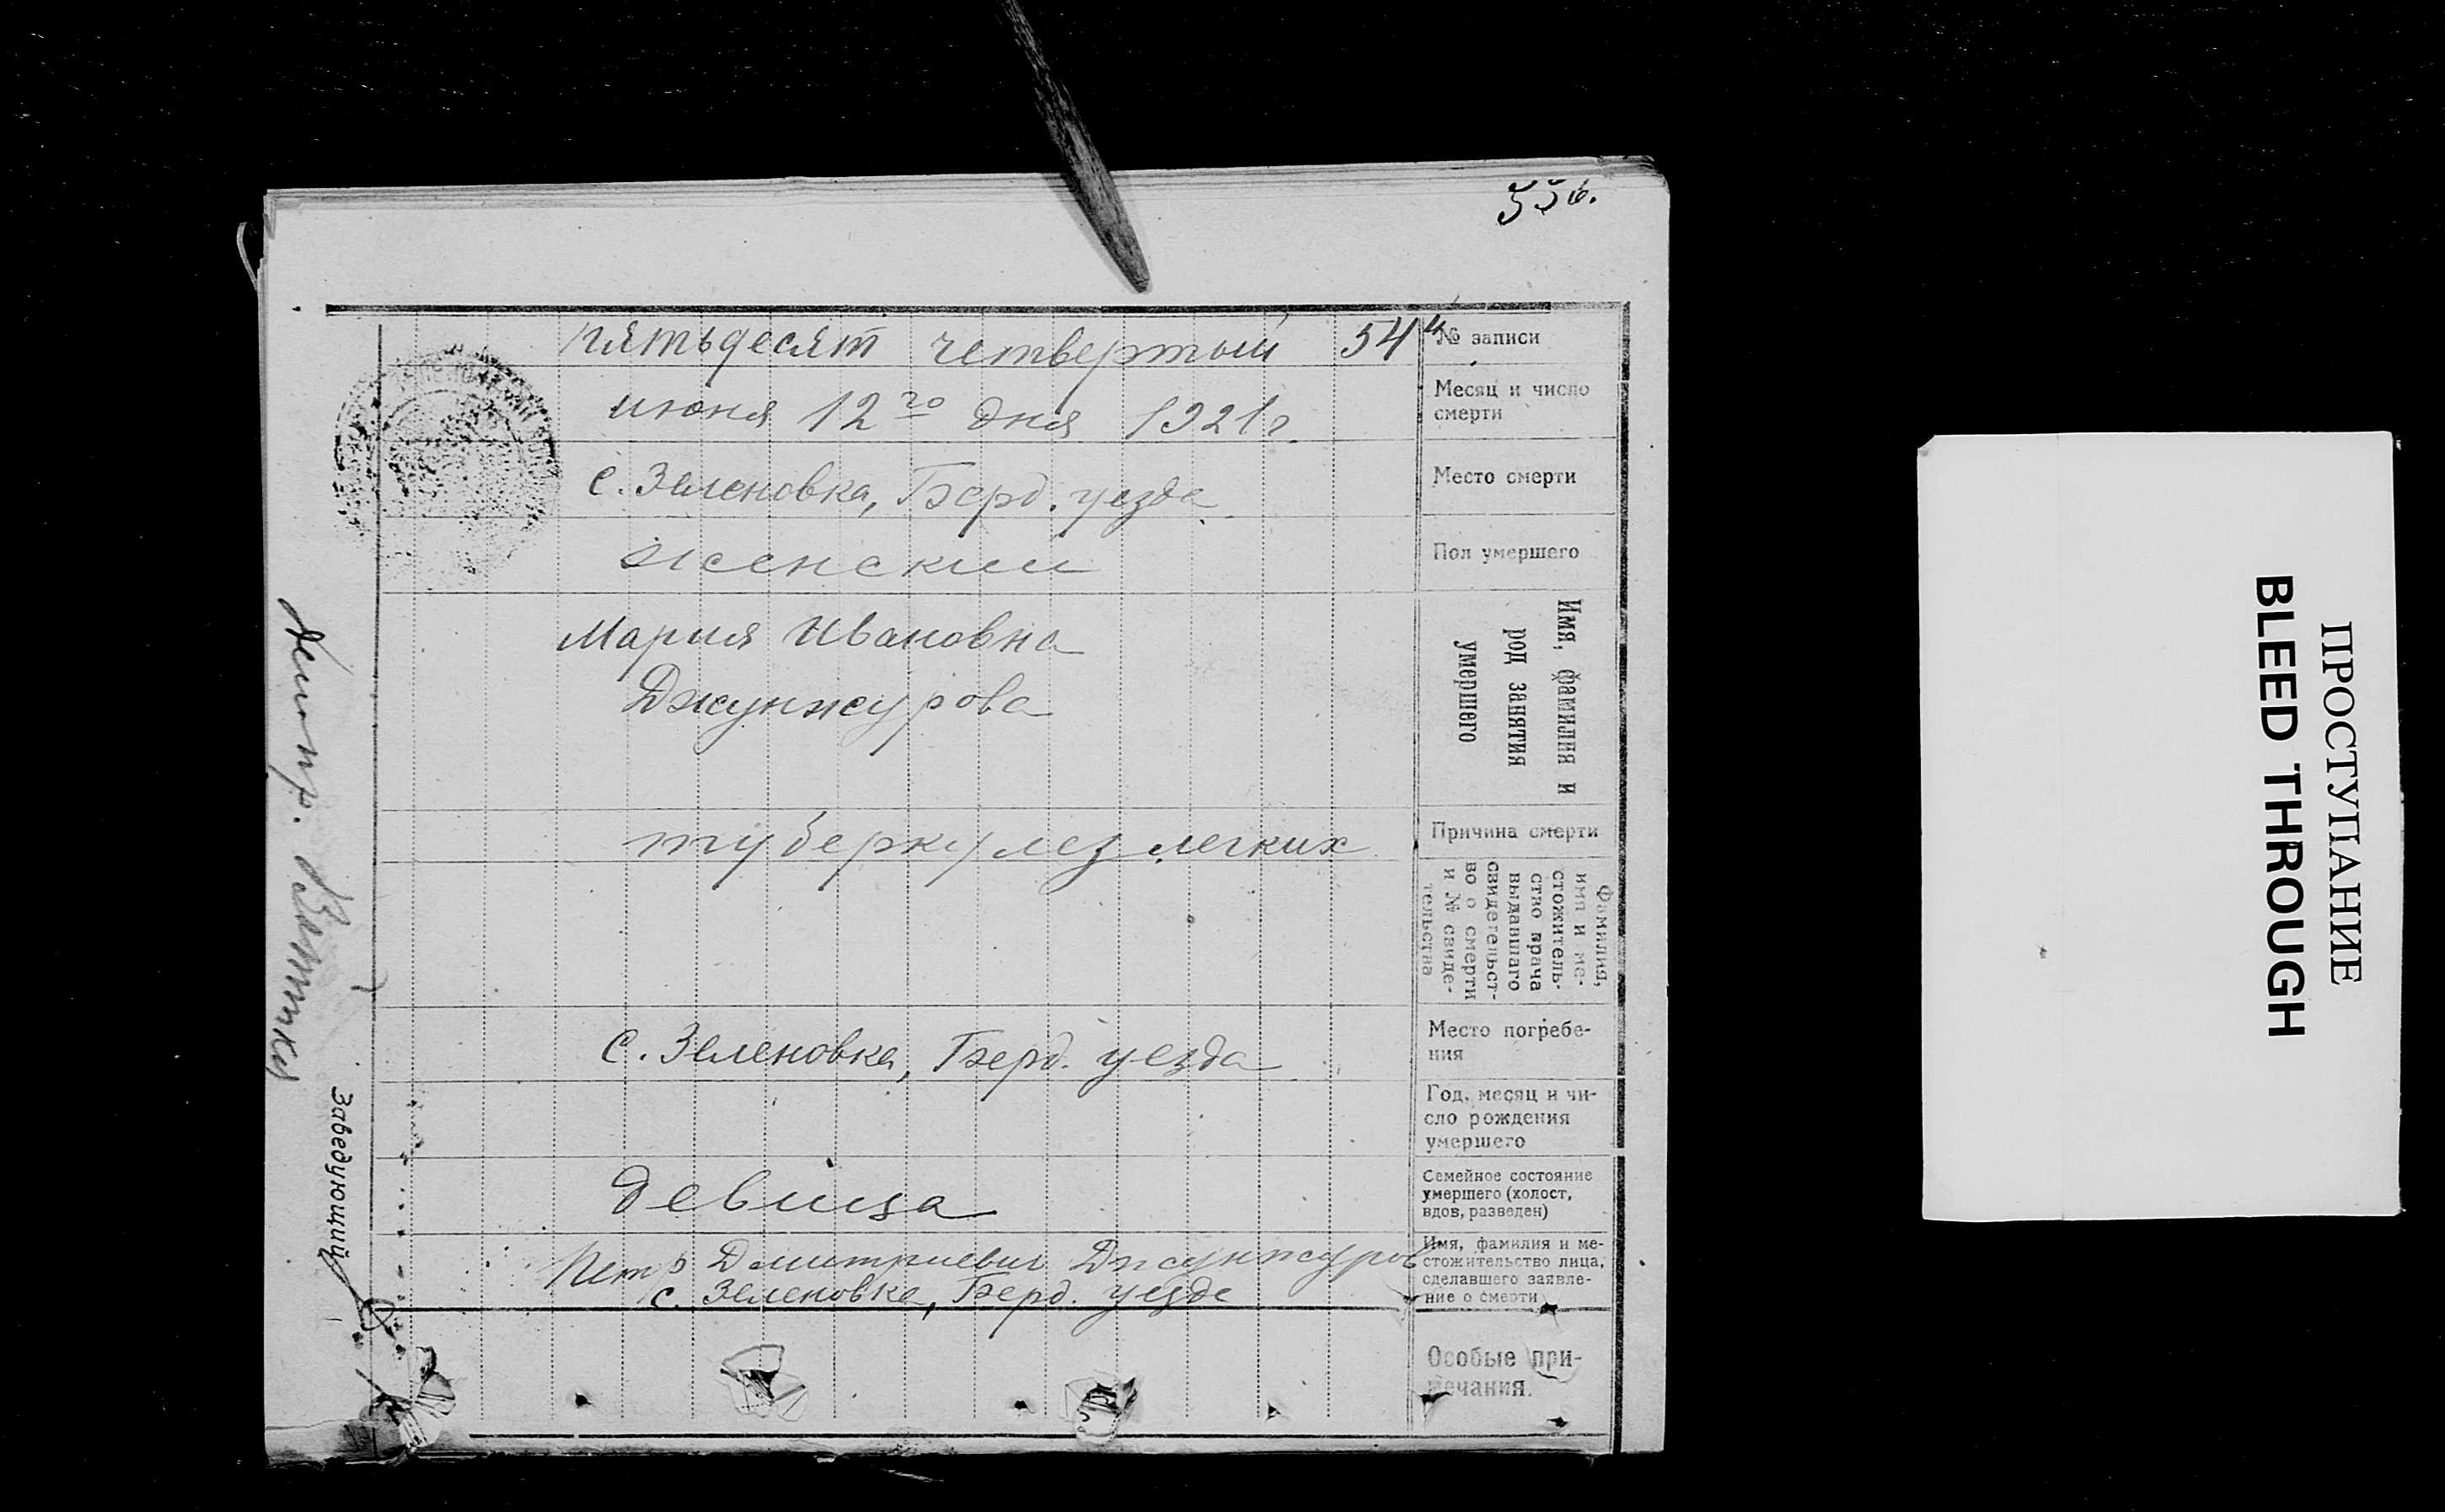 556.
пятьдесят четвертый 54
№ записи
июня 12го дня 1921 г.
Месяц и число
смерти
с. Зеленовка, Берд. уезда
Место смерти
женский
Пол умершего
Мария Ивановна
Джунжурова
Имя, фамилия и
род занятия
умершего
туберкулез легких
Причина смерти
Фамилия,
имя и ме-
стожитель-
ство врача
выдавшаго
свидетельст-
во о смерти
и № свиде-
тельства
с. Зеленовка, Берд. уезда
Место погребе-
ния
Год, месяц и чи-
сло рождения
умершего
девица
Семейное состояние
умершего (холост,
вдов, разведен)
Петр Дмитриевич Джунжуров
с. Зеленовка, Берд. уезда
Имя, фамилия и ме-
стожительство лица,
сделавшего заявле-
ние о смерти
Особые при-
мечания.
Заведующий
ПРОСТУПАНИЕ
BLEED THROUGH